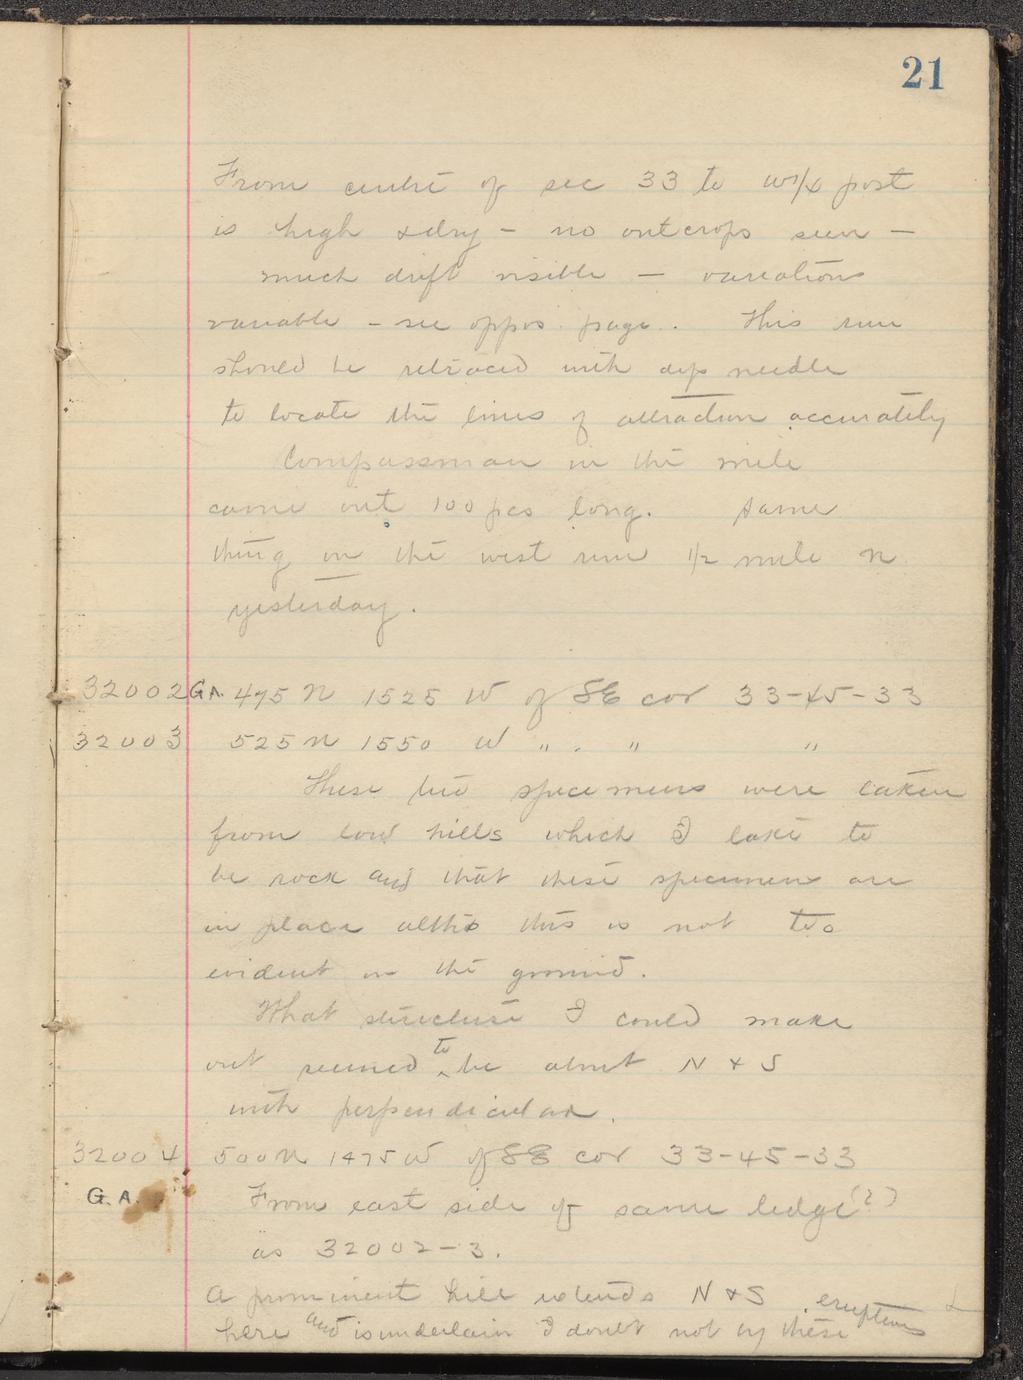 21
From centre of sec 33 to W 1/4 post
is high & dry - no outcrops seen -
much drift visible - variations
variable - see oppos. page. This run
should be retraced with dip needle
to locate the lines of attraction accurately
Compassman in the mile
came out 100 pcs long. Same
thing on the west run 1/2 mile N
yesterday.
32002 G.A. 475 N 1525 W of SE cor 33-45-33
32003 525 N 1550 W " . " "
These two specimens were taken
from low hills which I take to
be rock and that these specimen are
in place altho this is not too
evident on the ground.
What structure I could make
out seemed to be about N & S
with perpendicular.
32004 500 N 1475 W of SE cor 33-45-33
G.A. From east side of same ledge (?)
as 32002-3.
A prominent hill extends N & S
here and is underlain I doubt not by these eruptives